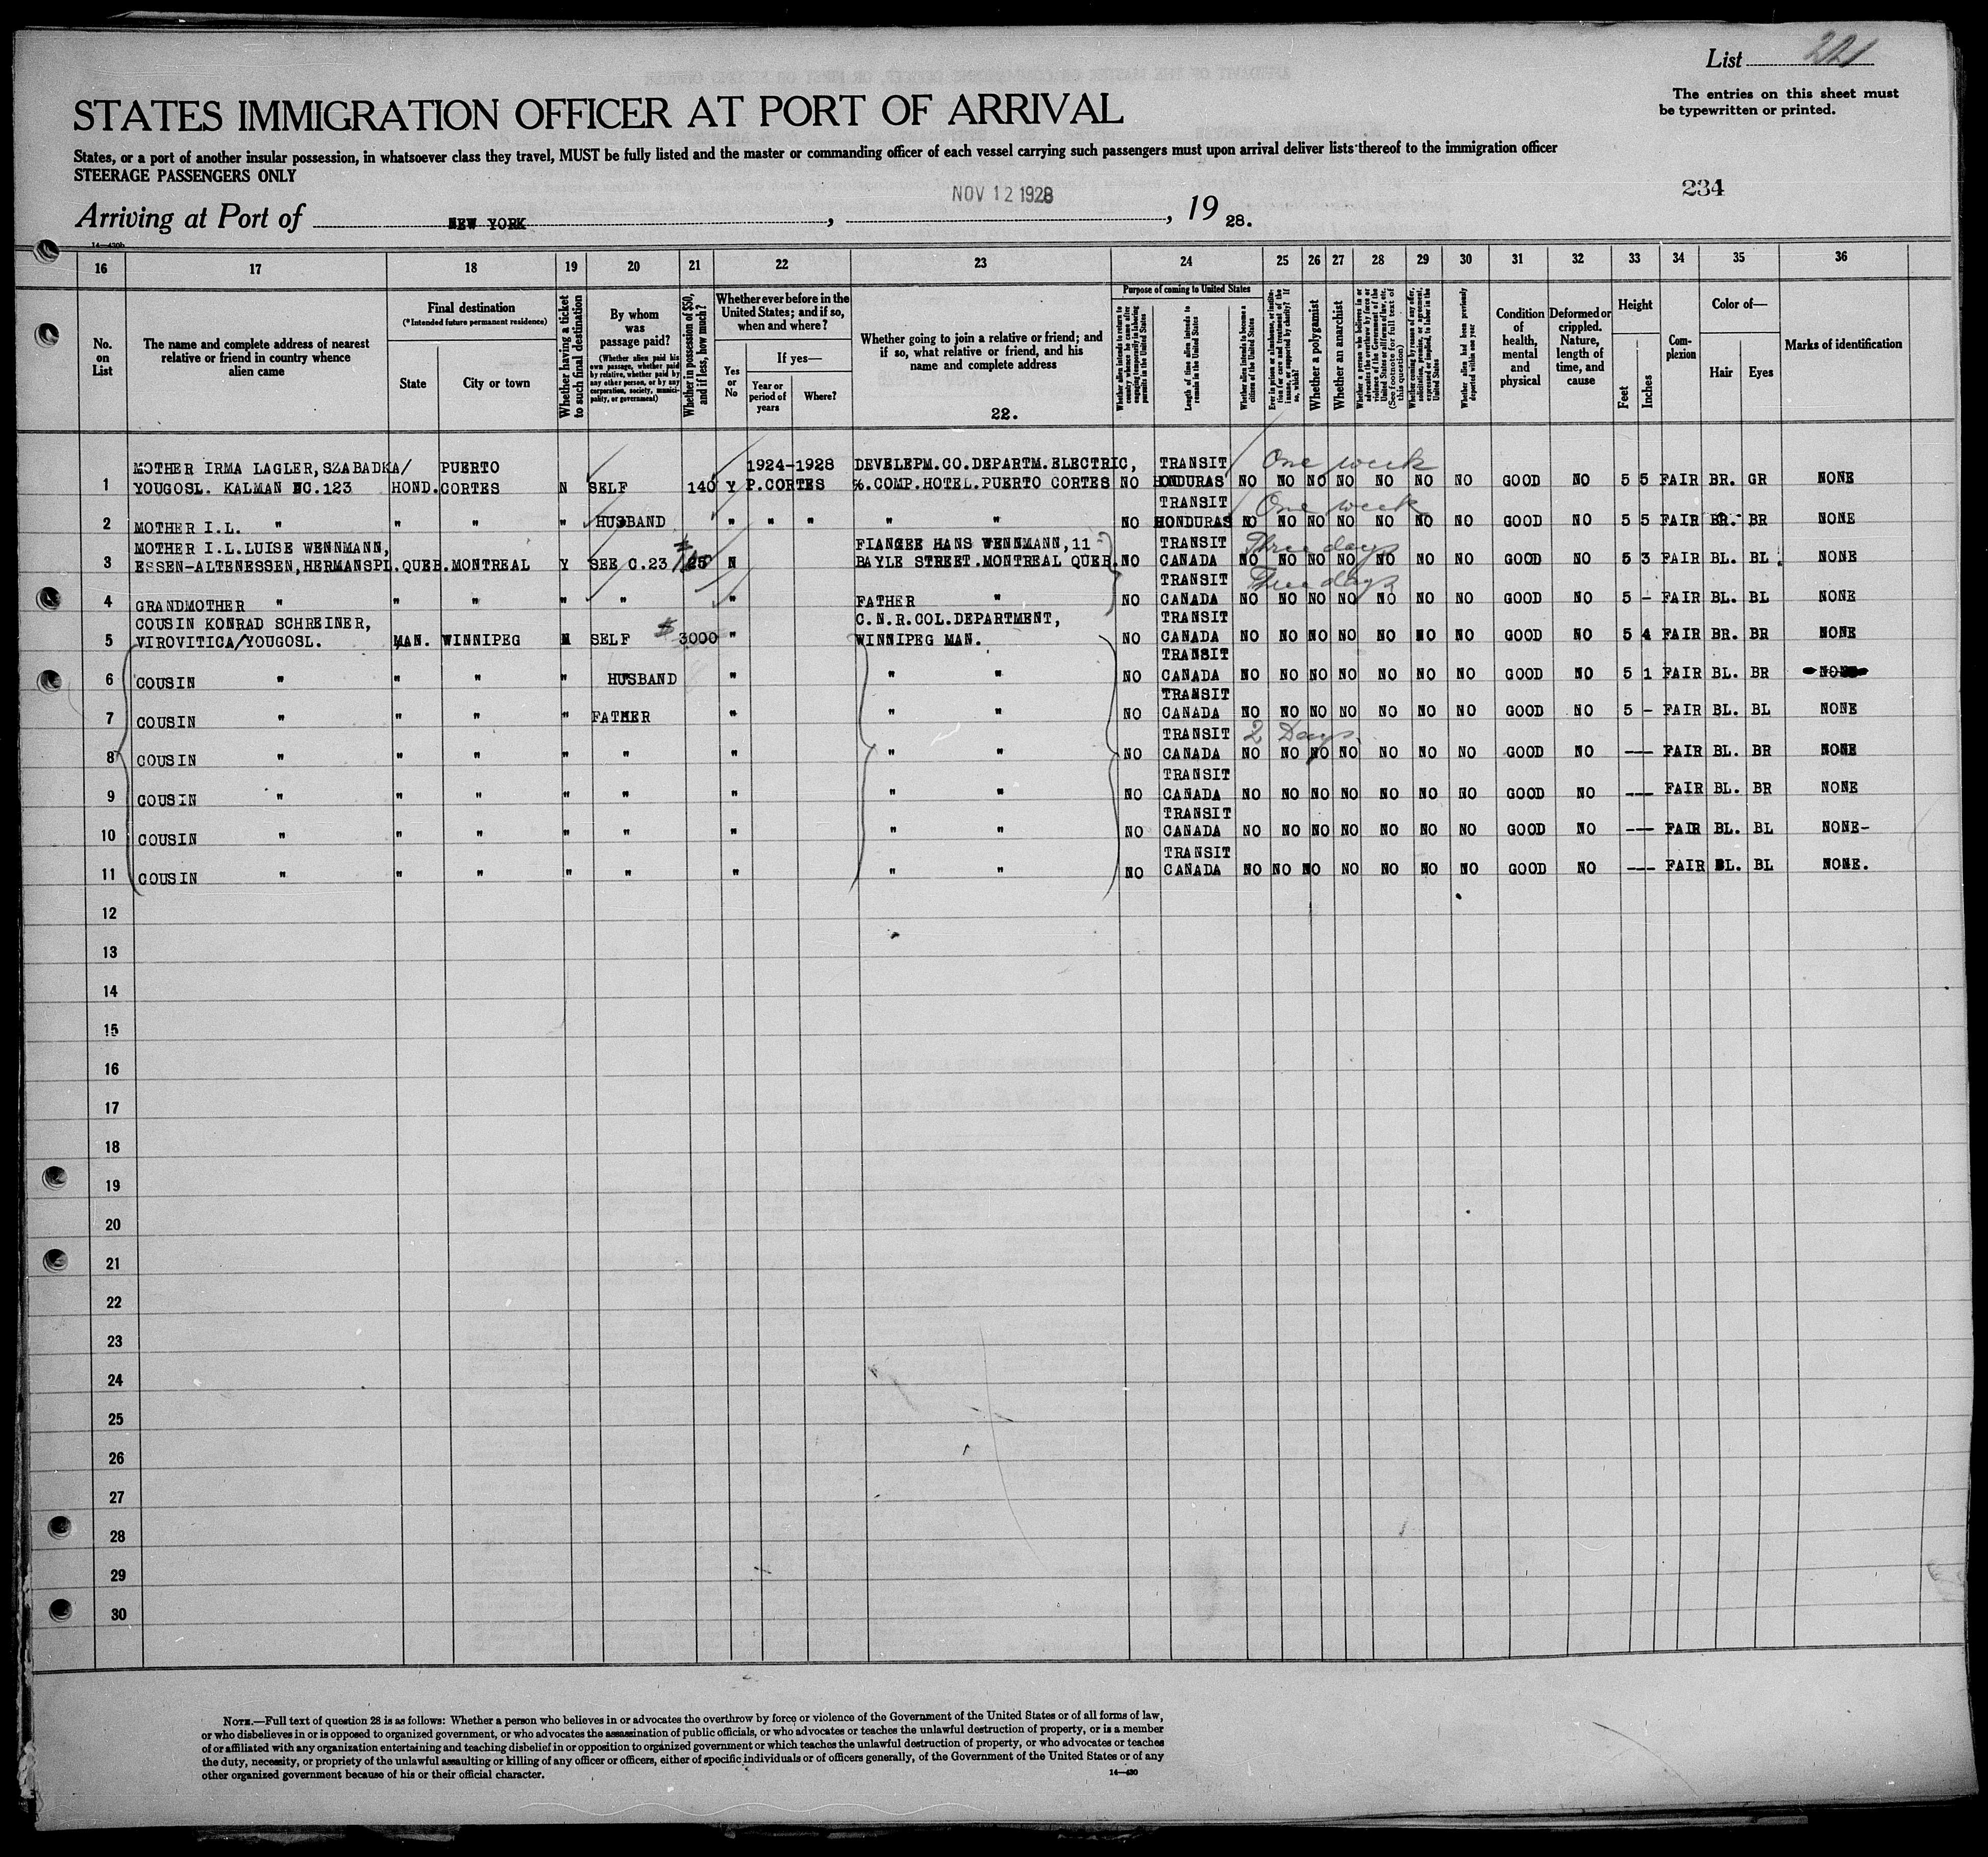 List 221
The entries on this sheet must
be typewritten or printed.
STATES IMMIGRATION OFFICER AT PORT OF ARRIVAL
States, or a port of another insular possession, in whatsoever class they travel, MUST be fully listed and the master or commanding officer of each vessel carrying such passengers must upon arrival deliver lists thereof to the immigration officer
STEERAGE PASSENGERS ONLY
234
Arriving at Port of NEW YORK, NOV 12 1928, 19 28.
14—430b
16 17 18 19 20 21 22 23 24 25 26 27 28 29 30 31 32 33 34 35 36
No. on List
The name and complete address of nearest relative or friend in country whence alien came
Final destination
(*Intended future permanent residence)
State
City or town
Whether having a ticket to such final destination
By whom was passage paid?
(Whether alien paid his own passage, whether paid by relative, whether paid by any other person, or by any corporation, society, municipality, or government)
Whether in possession of $50, and if less, how much?
Whether ever before in the United States; and if so, when and where?
Yes or No
If yes—
Year or period of years
Where?
Whether going to join a relative or friend; and if so, what relative or friend, and his name and complete address
22.
Purpose of coming to United States
Whether alien intends to return to country whence he came after engaging temporarily in laboring pursuits in the United States
Length of time alien intends to remain in the United States
Whether alien intends to become a citizen of the United States
Ever in prison or almshouse, or institution for care and treatment of the insane, or supported by charity? If so, which?
Whether a polygamist
Whether an anarchist
Whether a person who believes in or advocates the overthrow by force or violence of the Government of the United States or all forms of law, etc. (See footnote for full text of this question)
Whether coming by reason of any offer, solicitation, promise, or agreement, expressed or implied, to labor in the United States
Whether alien had been previously deported within one year
Condition of health, mental and physical
Deformed or crippled. Nature, length of time, and cause
Height
Feet
Inches
Complexion
Color of—
Hair
Eyes
Marks of identification
MOTHER IRMA LAGLER, SZABADKA/ PUERTO 1924-1928 DEVELEPM.CO.DEPARTM.ELECTRIC, TRANSIT One week
1 YOUGOSL. KALMAN NC.123 HOND. CORTES N SELF 140 Y P.CORTES %.COMP.HOTEL.PUERTO CORTES NO HONDURAS NO NO NO NO NO NO NO GOOD NO 5 5 FAIR BR. GR NONE
TRANSIT One week
2 MOTHER I.L. " " " " HUSBAND " " " " " NO HONDURAS NO NO NO NO NO NO NO GOOD NO 5 5 FAIR BR. BR NONE
MOTHER I.L.LUISE WENNMANN, FIANGEE HANS WENNMANN, 11 TRANSIT Three days
3 ESSEN-ALTENESSEN, HERMANSPL. QUEB. MONTREAL Y SEE C.23 $ 25 N BAYLE STREET.MONTREAL QUEB. NO CANADA NO NO NO NO NO NO NO GOOD NO 5 3 FAIR BL. BL. NONE
TRANSIT Three days
4 GRANDMOTHER " " " " " " FATHER " NO CANADA NO NO NO NO NO NO NO GOOD NO 5 - FAIR BL. BL NONE
COUSIN KONRAD SCHREINER, C.N.R.COL.DEPARTMENT, TRANSIT
5 VIROVITICA/YOUGOSL. MAN. WINNIPEG N SELF $ 3000 " WINNIPEG MAN. NO CANADA NO NO NO NO NO NO NO GOOD NO 5 4 FAIR BR. BR NONE
TRANSIT
6 COUSIN " " " " HUSBAND " " " NO CANADA NO NO NO NO NO NO NO GOOD NO 5 1 FAIR BL. BR NONE
TRANSIT
7 COUSIN " " " " FATHER " " " NO CANADA NO NO NO NO NO NO NO GOOD NO 5 - FAIR BL. BL NONE
TRANSIT 2 Days.
8 COUSIN " " " " " " " " NO CANADA NO NO NO NO NO NO NO GOOD NO --- FAIR BL. BR NONE
TRANSIT
9 COUSIN " " " " " " " " NO CANADA NO NO NO NO NO NO NO GOOD NO --- FAIR BL. BR NONE
TRANSIT
10 COUSIN " " " " " " " " NO CANADA NO NO NO NO NO NO NO GOOD NO --- FAIR BL. BL NONE-
TRANSIT
11 COUSIN " " " " " " " " NO CANADA NO NO NO NO NO NO NO GOOD NO --- FAIR BL. BL NONE.
12
13
14
15
16
17
18
19
20
21
22
23
24
25
26
27
28
29
30
NOTE.—Full text of question 28 is as follows: Whether a person who believes in or advocates the overthrow by force or violence of the Government of the United States or of all forms of law,
or who disbelieves in or is opposed to organized government, or who advocates the assassination of public officials, or who advocates or teaches the unlawful destruction of property, or is a member
of or affiliated with any organization entertaining and teaching disbelief in or opposition to organized government or which teaches the unlawful destruction of property, or who advocates or teaches
the duty, necessity, or propriety of the unlawful assaulting or killing of any officer or officers, either of specific individuals or of officers generally, of the Government of the United States or of any
other organized government because of his or their official character.
14—430